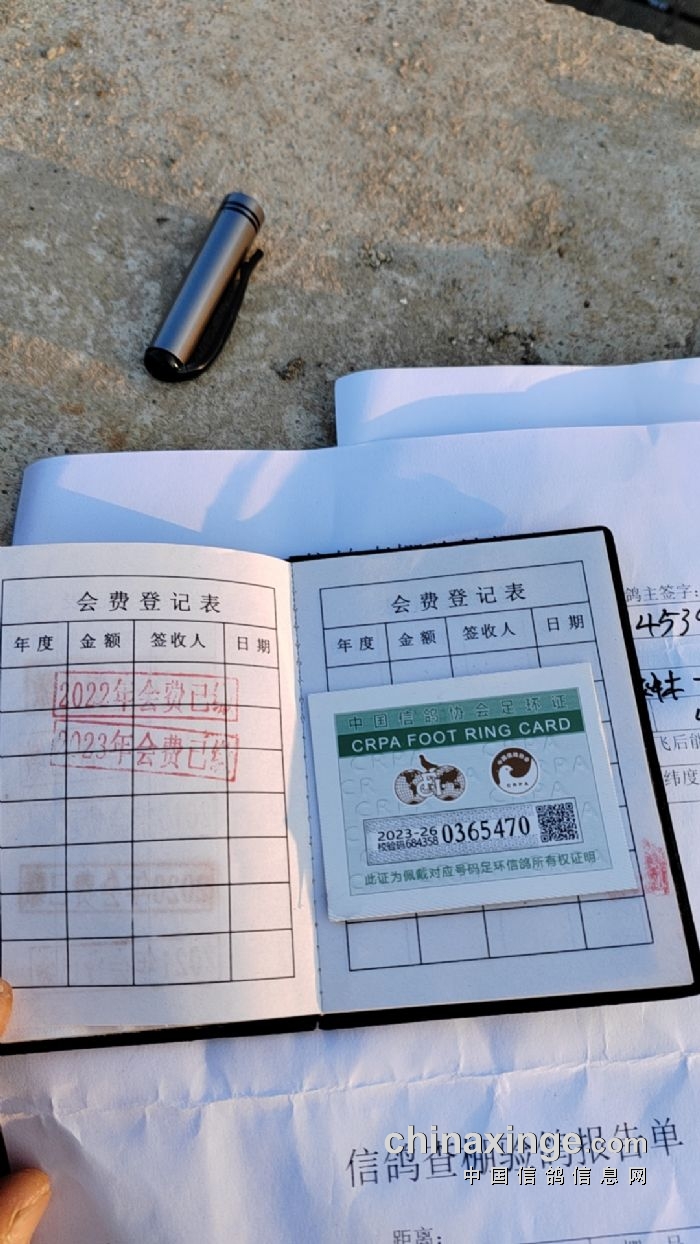 会费登记表
年度 金额 签收人 日期
2022年会费已缴
2023年会费已缴
会费登记表
年度 金额 签收人 日期
中国信鸽协会足环证
CRPA FOOT RING CARD
CRPA
2023-26 0365470
校验码684358
此证为佩戴对应号码足环信鸽所有权证明
鸽主签字:
飞后能
纬度
信鸽查棚验鸽报告单
距离:
chinaxinge.com
中国信鸽信息网